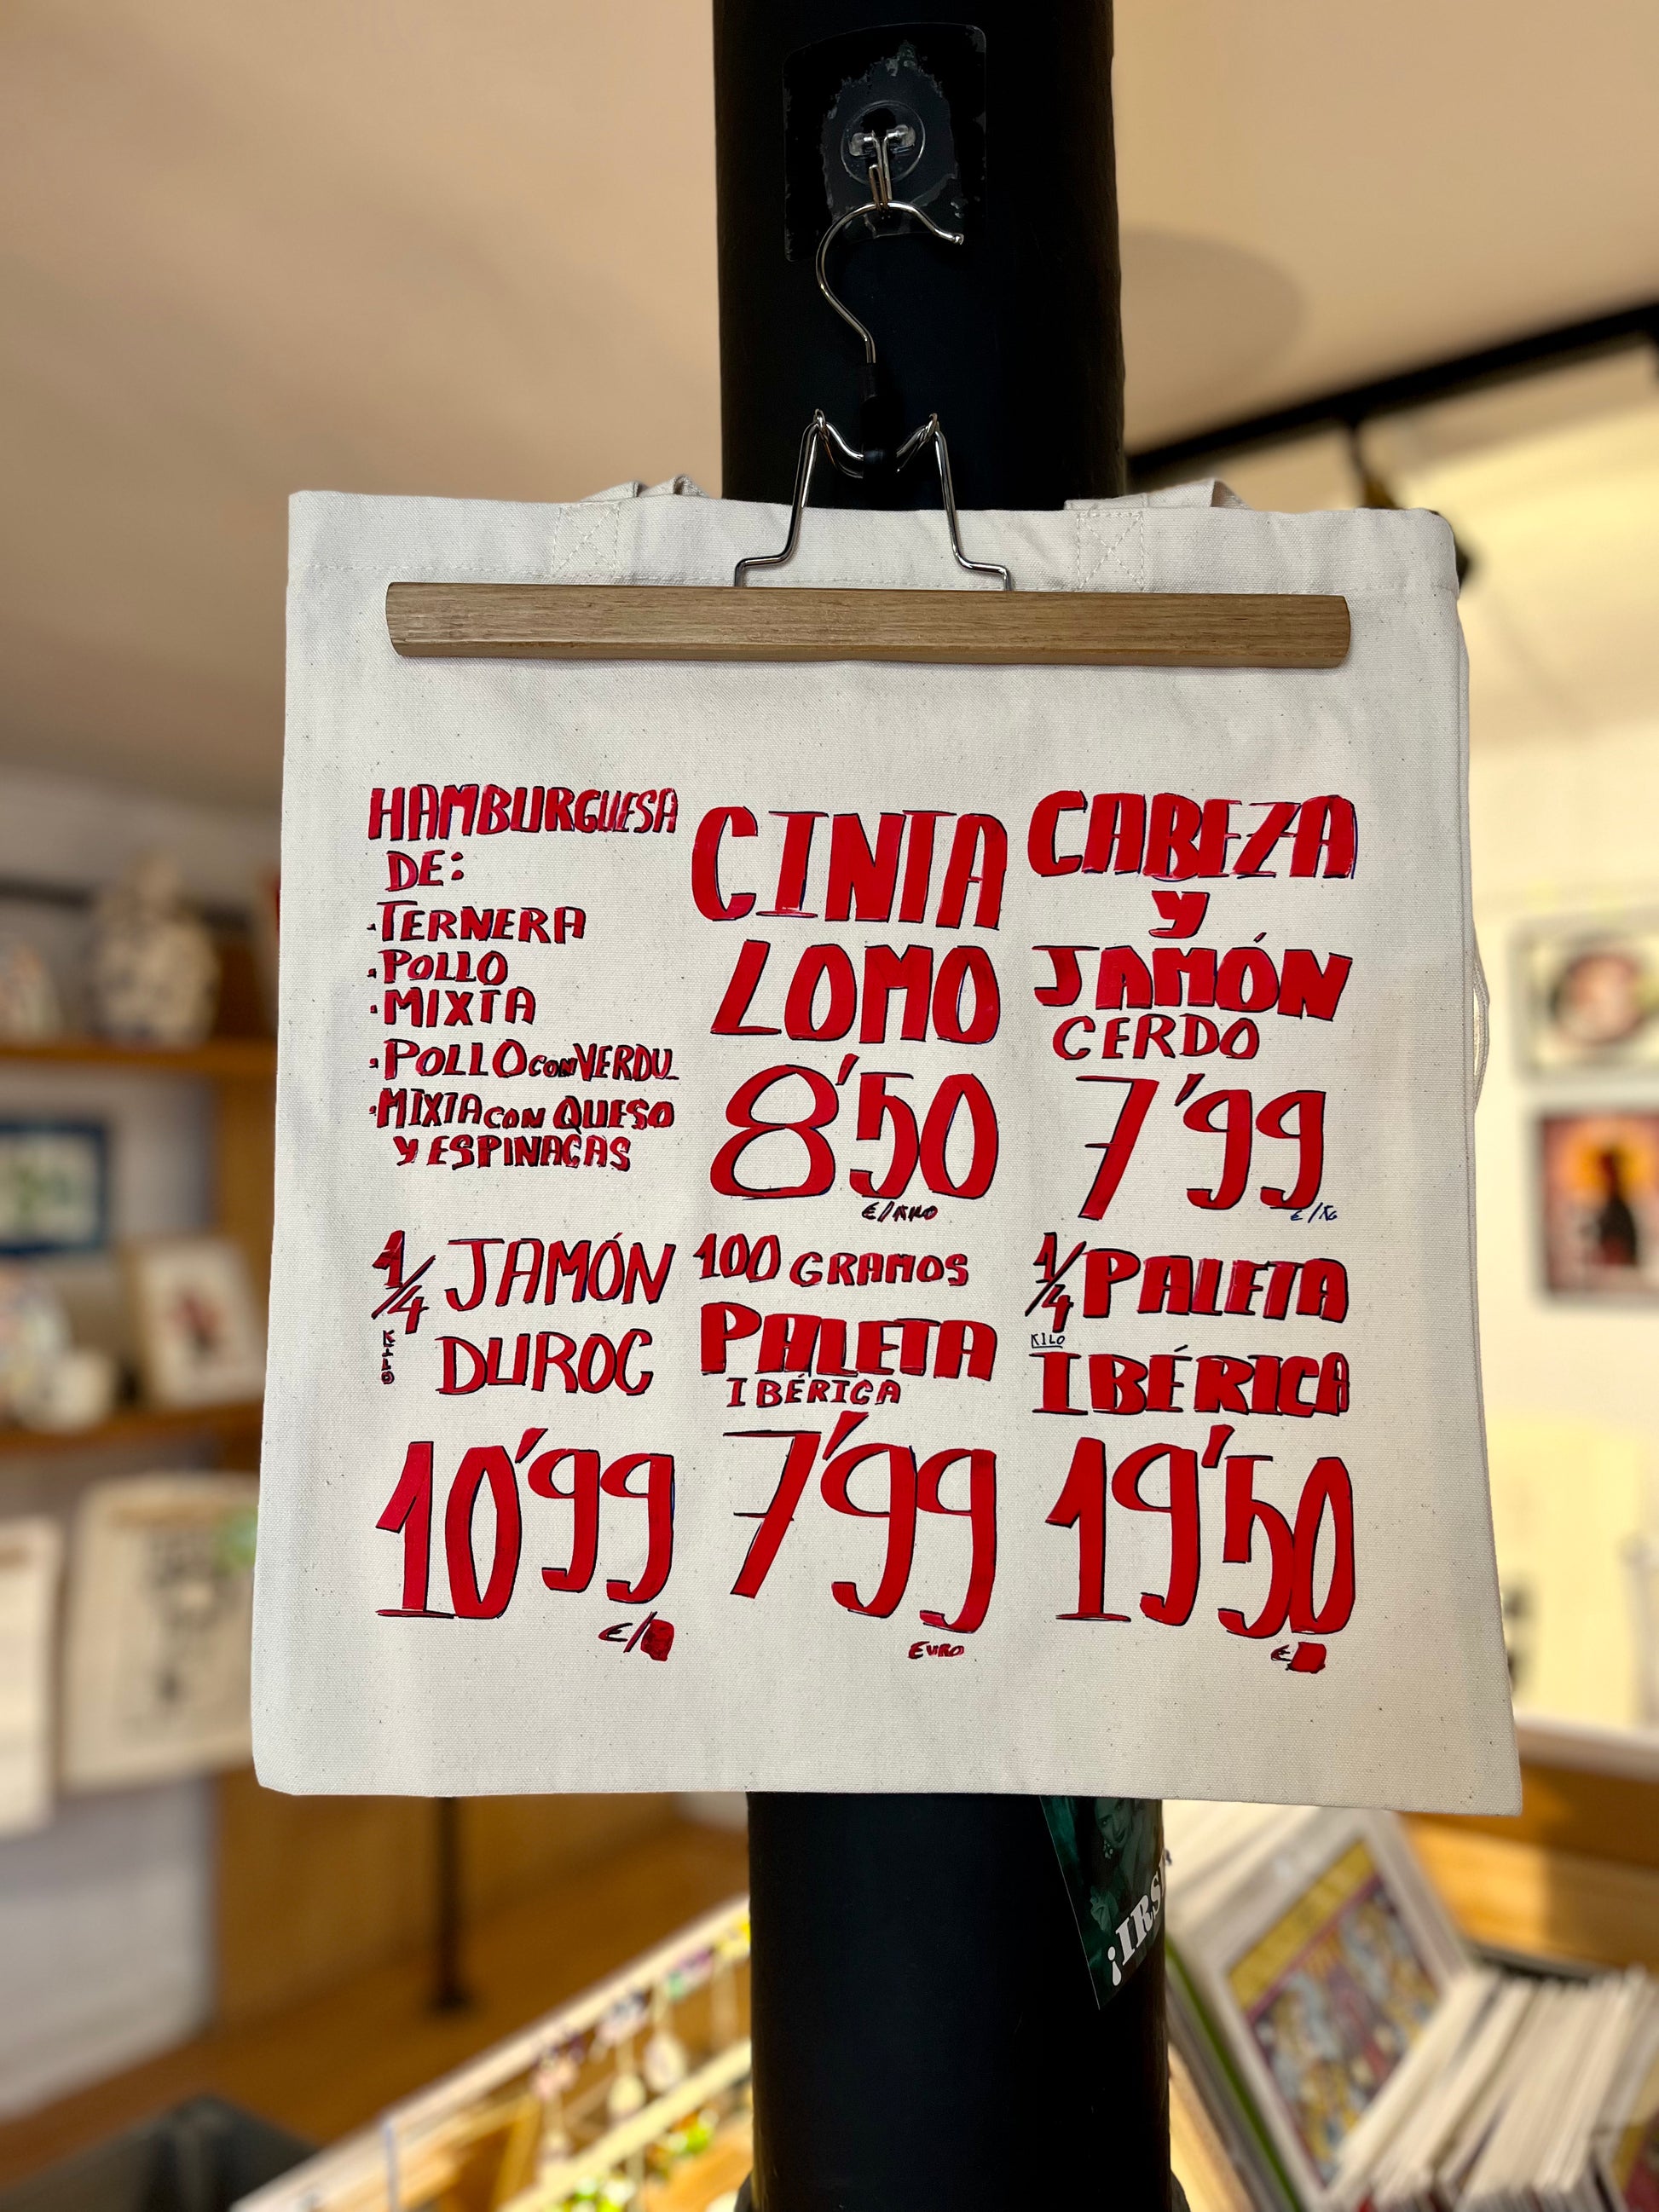 HAMBURGUESA
DE:
·TERNERA
·POLLO
·MIXTA
·POLLO CON VERDU
·MIXTA CON QUESO
Y ESPINACAS
CINTA
LOMO
8'50
€/KILO
CABEZA
Y
JAMÓN
CERDO
7'99
€/KG
1/4 JAMÓN
KILO
DUROC
10'99
€/
100 GRAMOS
PALETA
IBÉRICA
7'99
EURO
1/4 PALETA
KILO
IBÉRICA
19'50
€